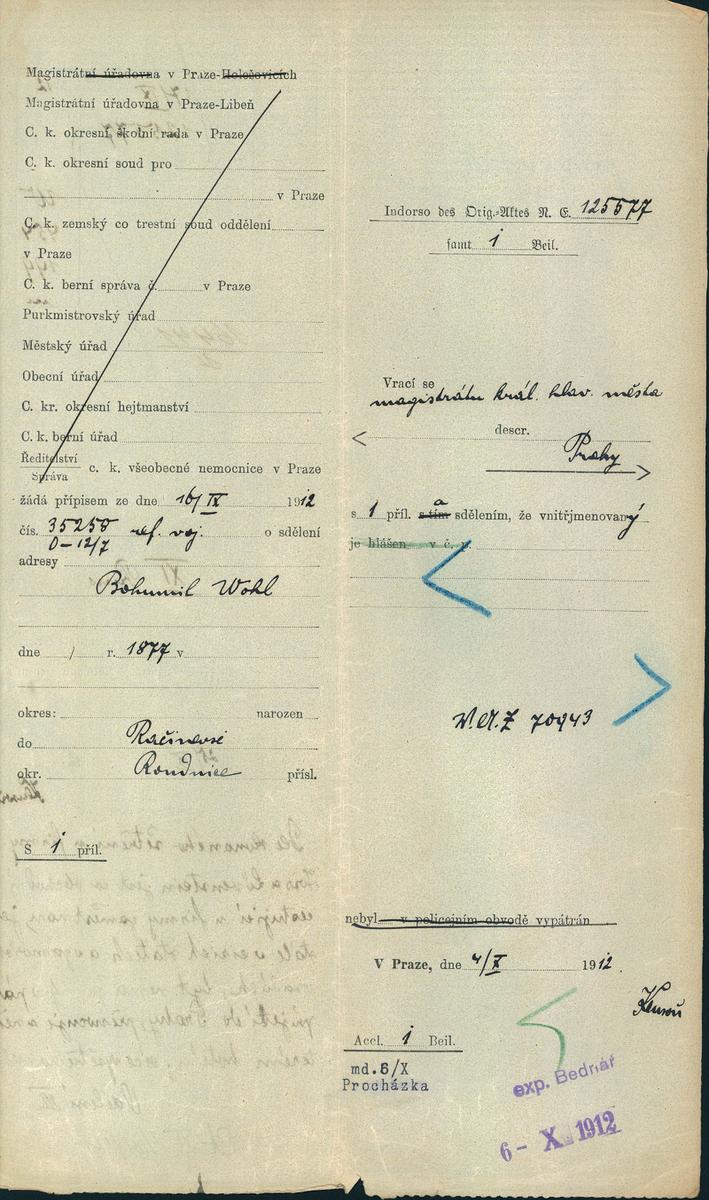 Magistrátní úřadovna v Praze-Holešovicích
Magistrátní úřadovna v Praze-Libeň
C. k. okresní školní rada v Praze
C. k. okresní soud pro
v Praze
C. k. zemský co trestní soud oddělení
v Praze
C. k. berní správa č. v Praze
Purkmistrovský úřad
Městský úřad
Obecní úřad
C. kr. okresní hejtmanství
C. k. berní úřad
Ředitelství
Správa
c. k. všeobecné nemocnice v Praze
žádá přípisem ze dne 16/IX 1912
čís. 35258 ref. voj. o sdělení
0-12/7
adresy
Bohumil Wohl
dne / r. 1877 v
okres: narozen
do Račinevsi
okr. Roudnice přísl.
S 1 příl.
Indorso des Orig.-Aktes N. E. 125577
samt 1 Beil.
Vrací se
magistrátu král. hlav. města
descr.
Prahy
s 1 příl. s tím a sdělením, že vnitřjmenovaný
je hlášen v č. p.
70943
nebyl v policejním obvodě vypátrán
V Praze, dne 4/X 1912.
Accl. 1 Beil.
md.6/X
Procházka
exp. Bednář
6 - X 1912